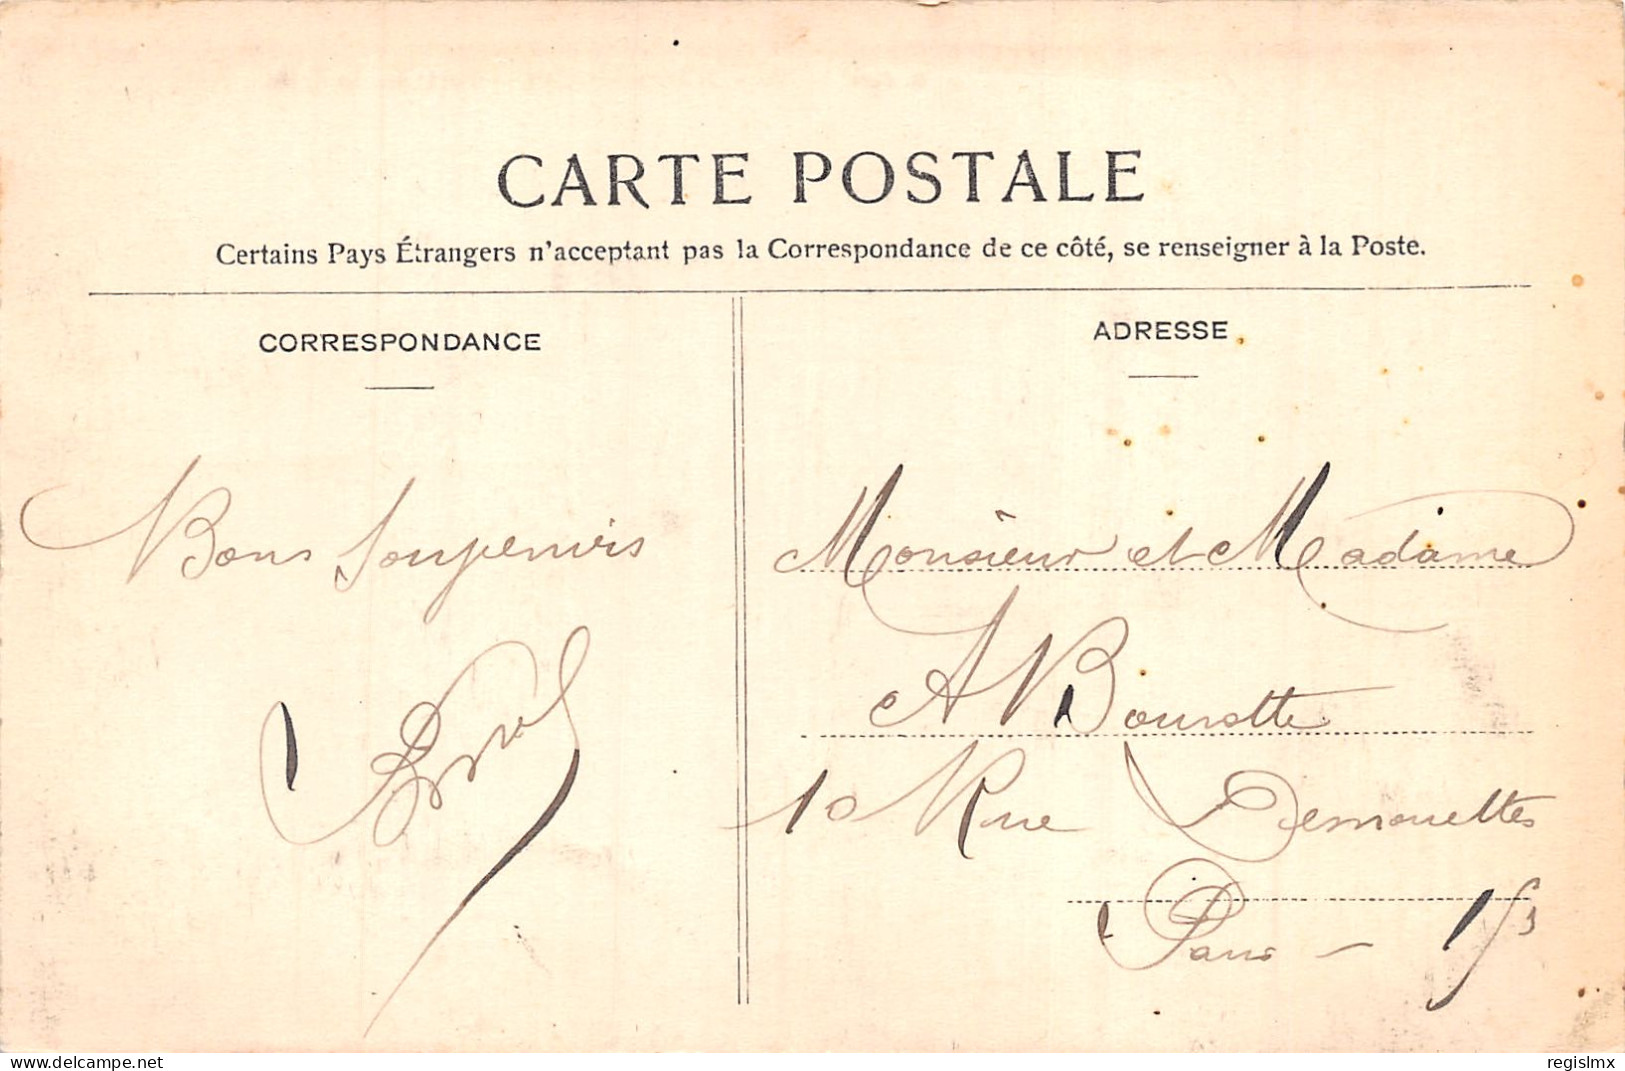 CARTE POSTALE
Certains Pays Étrangers n'acceptant pas la Correspondance de ce côté, se renseigner à la Poste.
CORRESPONDANCE
Bons Souvenirs
ADRESSE
Monsieur et Madame
A Bourotte
10 Rue Desnouettes
Paris - 15
www.delcampe.net
regislmx